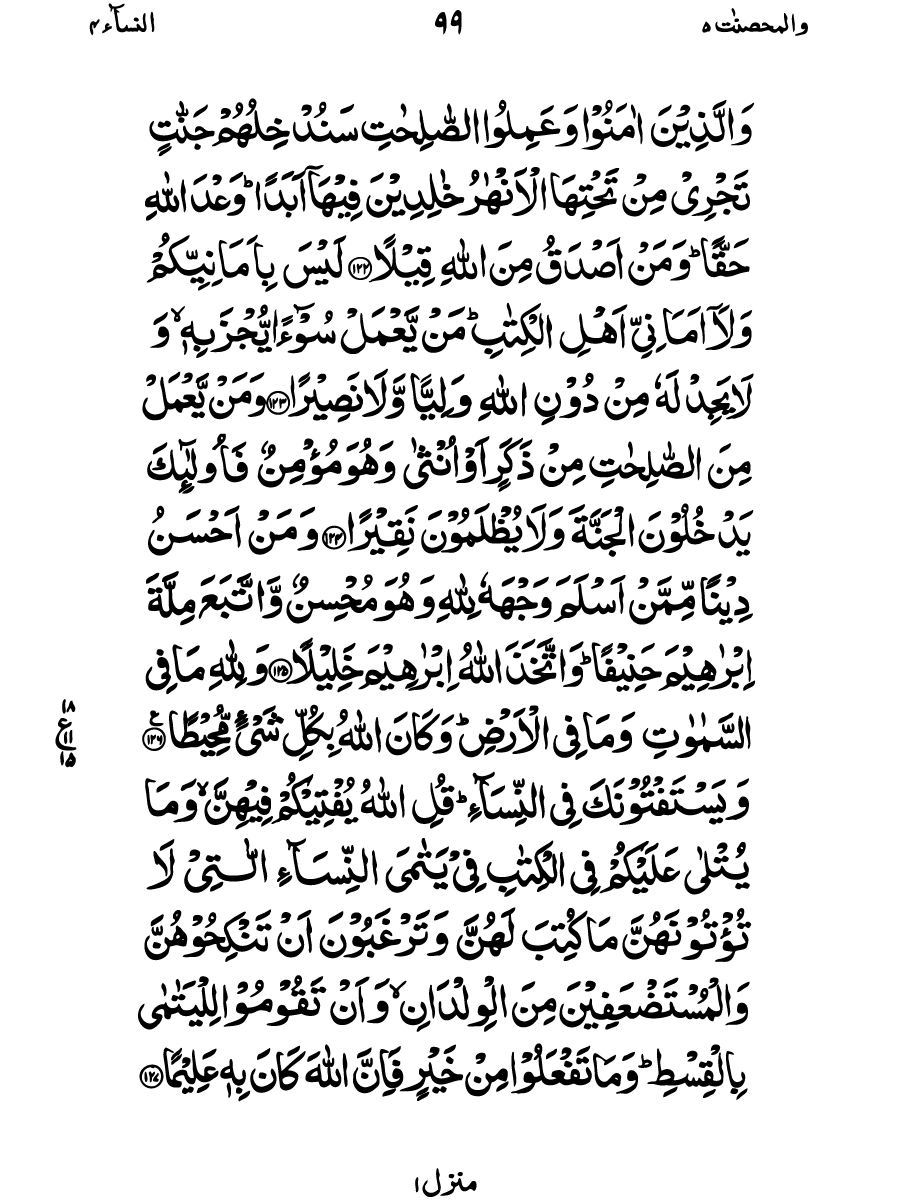 والمحصنٰت ۵ ۹۹ النسآء ۴
وَالَّذِيْنَ اٰمَنُوْا وَعَمِلُوا الصّٰلِحٰتِ سَنُدْخِلُهُمْ جَنّٰتٍ
تَجْرِىْ مِنْ تَحْتِهَا الْاَنْهٰرُ خٰلِدِيْنَ فِيْهَاۤ اَبَدًا ؕ وَعْدَ اللّٰهِ
حَقًّا ؕ وَمَنْ اَصْدَقُ مِنَ اللّٰهِ قِيْلًا ﴿۱۲۲﴾ لَيْسَ بِاَمَانِيِّكُمْ
وَلَاۤ اَمَانِىِّ اَهْلِ الْكِتٰبِ ؕ مَنْ يَّعْمَلْ سُوْٓءًا يُّجْزَ بِهٖ ۙ وَ
لَا يَجِدْ لَهٗ مِنْ دُوْنِ اللّٰهِ وَلِيًّا وَّلَا نَصِيْرًا ﴿۱۲۳﴾ وَمَنْ يَّعْمَلْ
مِنَ الصّٰلِحٰتِ مِنْ ذَكَرٍ اَوْ اُنْثٰى وَهُوَ مُؤْمِنٌ فَاُولٰٓئِكَ
يَدْخُلُوْنَ الْجَنَّةَ وَلَا يُظْلَمُوْنَ نَقِيْرًا ﴿۱۲۴﴾ وَمَنْ اَحْسَنُ
دِيْنًا مِّمَّنْ اَسْلَمَ وَجْهَهٗ لِلّٰهِ وَهُوَ مُحْسِنٌ وَّاتَّبَعَ مِلَّةَ
اِبْرٰهِيْمَ حَنِيْفًا ؕ وَاتَّخَذَ اللّٰهُ اِبْرٰهِيْمَ خَلِيْلًا ﴿۱۲۵﴾ وَلِلّٰهِ مَا فِى
السَّمٰوٰتِ وَمَا فِى الْاَرْضِ ؕ وَكَانَ اللّٰهُ بِكُلِّ شَىْءٍ مُّحِيْطًا ﴿۱۲۶﴾ ع
۱۸ ع ۱۱ ۱۵
وَيَسْتَفْتُوْنَكَ فِى النِّسَآءِ ؕ قُلِ اللّٰهُ يُفْتِيْكُمْ فِيْهِنَّ ۙ وَمَا
يُتْلٰى عَلَيْكُمْ فِى الْكِتٰبِ فِىْ يَتٰمَى النِّسَآءِ الّٰتِىْ لَا
تُؤْتُوْنَهُنَّ مَا كُتِبَ لَهُنَّ وَتَرْغَبُوْنَ اَنْ تَنْكِحُوْهُنَّ
وَالْمُسْتَضْعَفِيْنَ مِنَ الْوِلْدَانِ ۙ وَاَنْ تَقُوْمُوْا لِلْيَتٰمٰى
بِالْقِسْطِ ؕ وَمَا تَفْعَلُوْا مِنْ خَيْرٍ فَاِنَّ اللّٰهَ كَانَ بِهٖ عَلِيْمًا ﴿۱۲۷﴾
منزل ۱